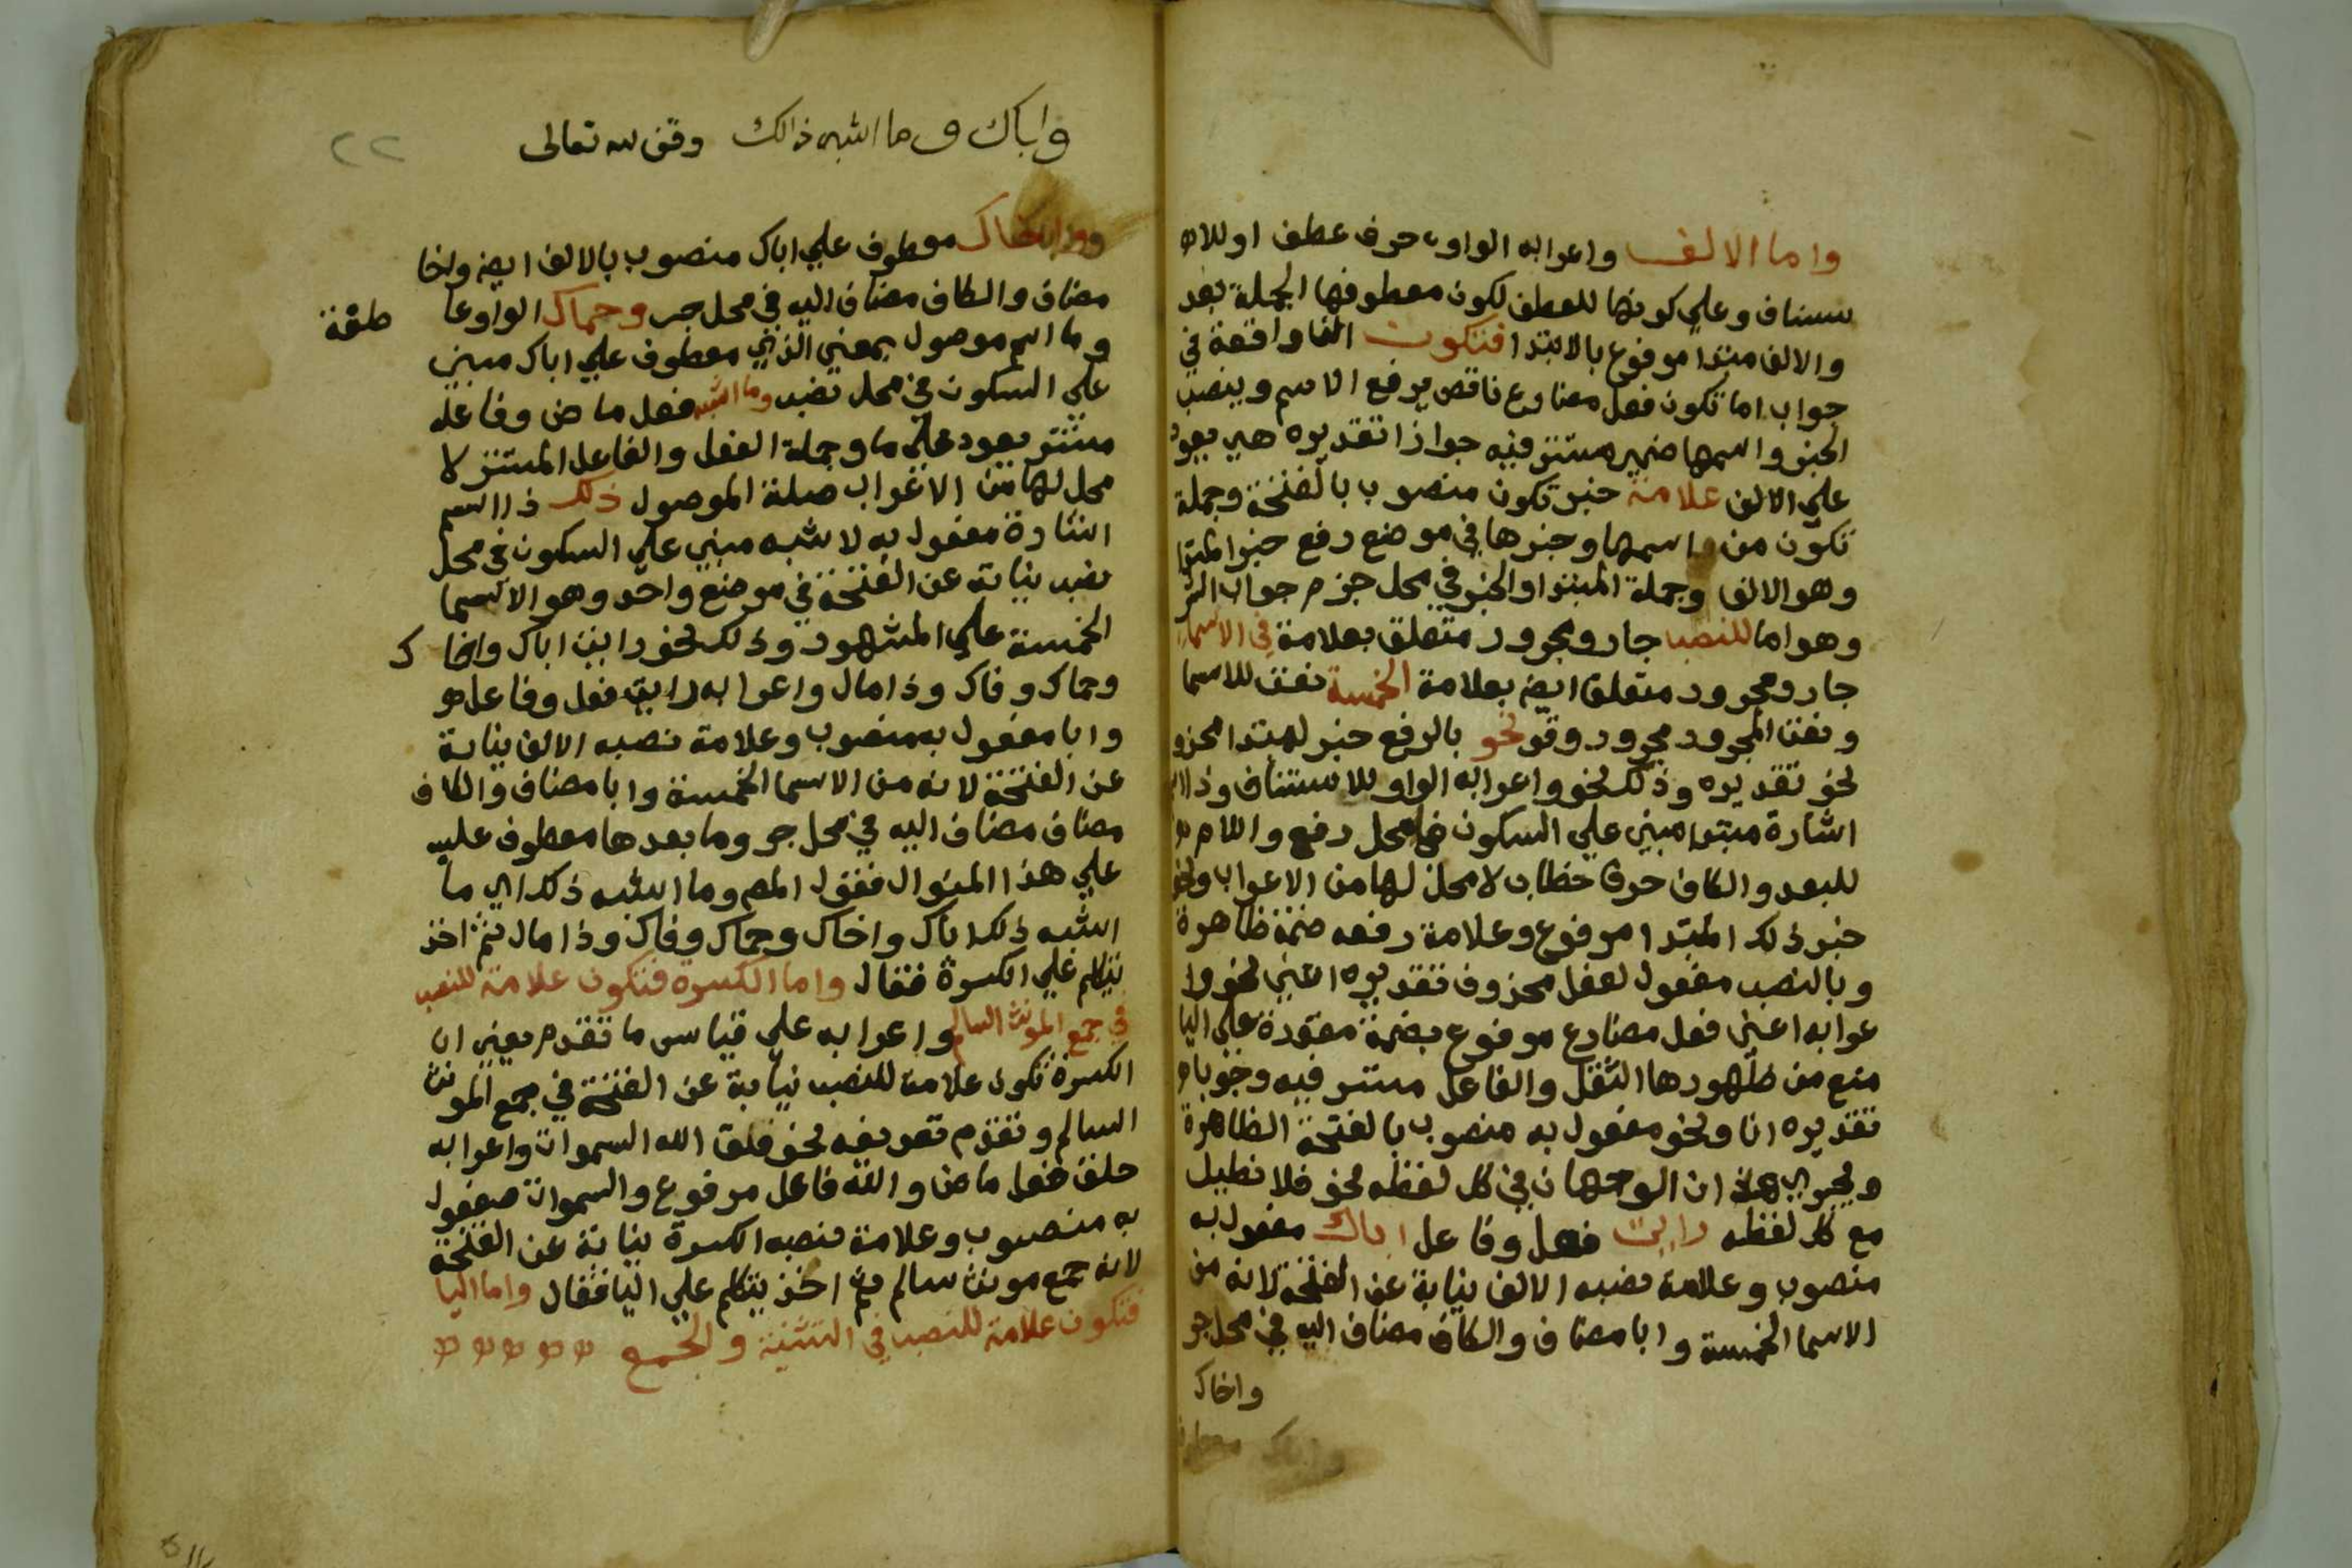 واما الالف واعرابه الواو حرف عطف او للا
ستناف وعلي كونها للعطف لكون معطوفها الجملة بعد
والالف مبتدا مرفوع بالابتدا فتكون الفا واقعة في
جواب اما تكون فعل مضارع ناقص يرفع الاسم وينصب
الخبر واسمها ضمير مستتر فيه جوازا تقديره هي يعود
علي الالف علامة خبر تكون منصوب بالفتحة وجملة
تكون من اسمها وخبرها في موضع رفع خبر المبتدا
وهو الالف وجملة المبتدا والخبر في محل جزم جواب الشر
وهو اما للنصب جار ومجرور متعلق بعلامة في الاسماء
جار ومجرور متعلق ايضا بعلامة الخمسة نعت للاسما
ونعت المجرور مجرور وقو نحو بالرفع خبر لمبتدا محذو
نحو تقديره وذلك نحو واعرابه الواو للاستئناف وذا ا
اشارة مبتدا مبني علي السكون في محل رفع واللام
للبعد والكاف حرف خطاب لا محل لها من الاعراب ونحو
خبر ذلك المبتدا مرفوع وعلامة رفعه ضمة ظاهرة
وبالنصب مفعول لفعل محذوف تقديره اعني نحو وا
عرابه اعني فعل مضارع مرفوع بضمة مقدرة علي اليا
منع من ظهورها الثقل والفاعل مستتر فيه وجوبا
تقديره انا ونحو مفعول به منصوب بالفتحة الظاهرة
ويجري هذان الوجهان في كل لفظه نحو فلا نطيل
مع كل لفظه رايت فعل وفاعل اباك مفعول به
منصوب وعلامة نصبه الالف نيابة عن الفتحة لانه من
الاسما الخمسة وابا مضاف والكاف مضاف اليه في محل جر
واخاك
واباك وما اشبه ذالك وقف لله تعالى
٢٢
واخاك معطوف علي اباك منصوب بالالف ايضا واخا
مضاف والكاف مضاف اليه في محل جر وحماك الواو عا طفة
وما اسم موصول بمعني الذي معطوف علي اباك مبني
علي السكون في محل نصب وما اشبه فعل ماض وفاعله
مستتر يعود علي ما وجملة الفعل والفاعل المستتر لا
محل لها من الاعراب صلة الموصول ذلك ذا اسم
اشارة مفعول به لاشبه مبني علي السكون في محل
نصب نيابة عن الفتحة في موضع واحد وهو الاسما
الخمسة علي المشهور وذلك نحو رايت اباك واخا ك
وحماك وفاك وذا مال واعرابه رايت فعل وفاعل
وابا مفعول به منصوب وعلامة نصبه الالف نيابة
عن الفتحة لانه من الاسما الخمسة وابا مضاف والكاف
مضاف مضاف اليه في محل جر وما بعدها معطوف عليه
علي هذا المنوال فقول المص وما اشبه ذلك اي ما
اشبه ذلك اباك واخاك وحماك وفاك وذا مال ثم اخذ
يتكلم علي الكسرة فقال واما الكسرة فتكون علامة للنصب
في جمع المونث السالم واعرابه علي قياس ما تقدم يعني ان
الكسرة تكون علامة للنصب نيابة عن الفتحة في جمع المونث
السالم وتقدم تعريفه نحو خلق الله السموات واعرابه
خلق فعل ماض والله فاعل مرفوع والسموات مفعول
به منصوب وعلامة نصبه الكسرة نيابة عن الفتحة
لانه جمع مونث سالم ثم اخذ يتكلم علي اليا فقال واما اليا
فتكون علامة للنصب في التثنية والجمع